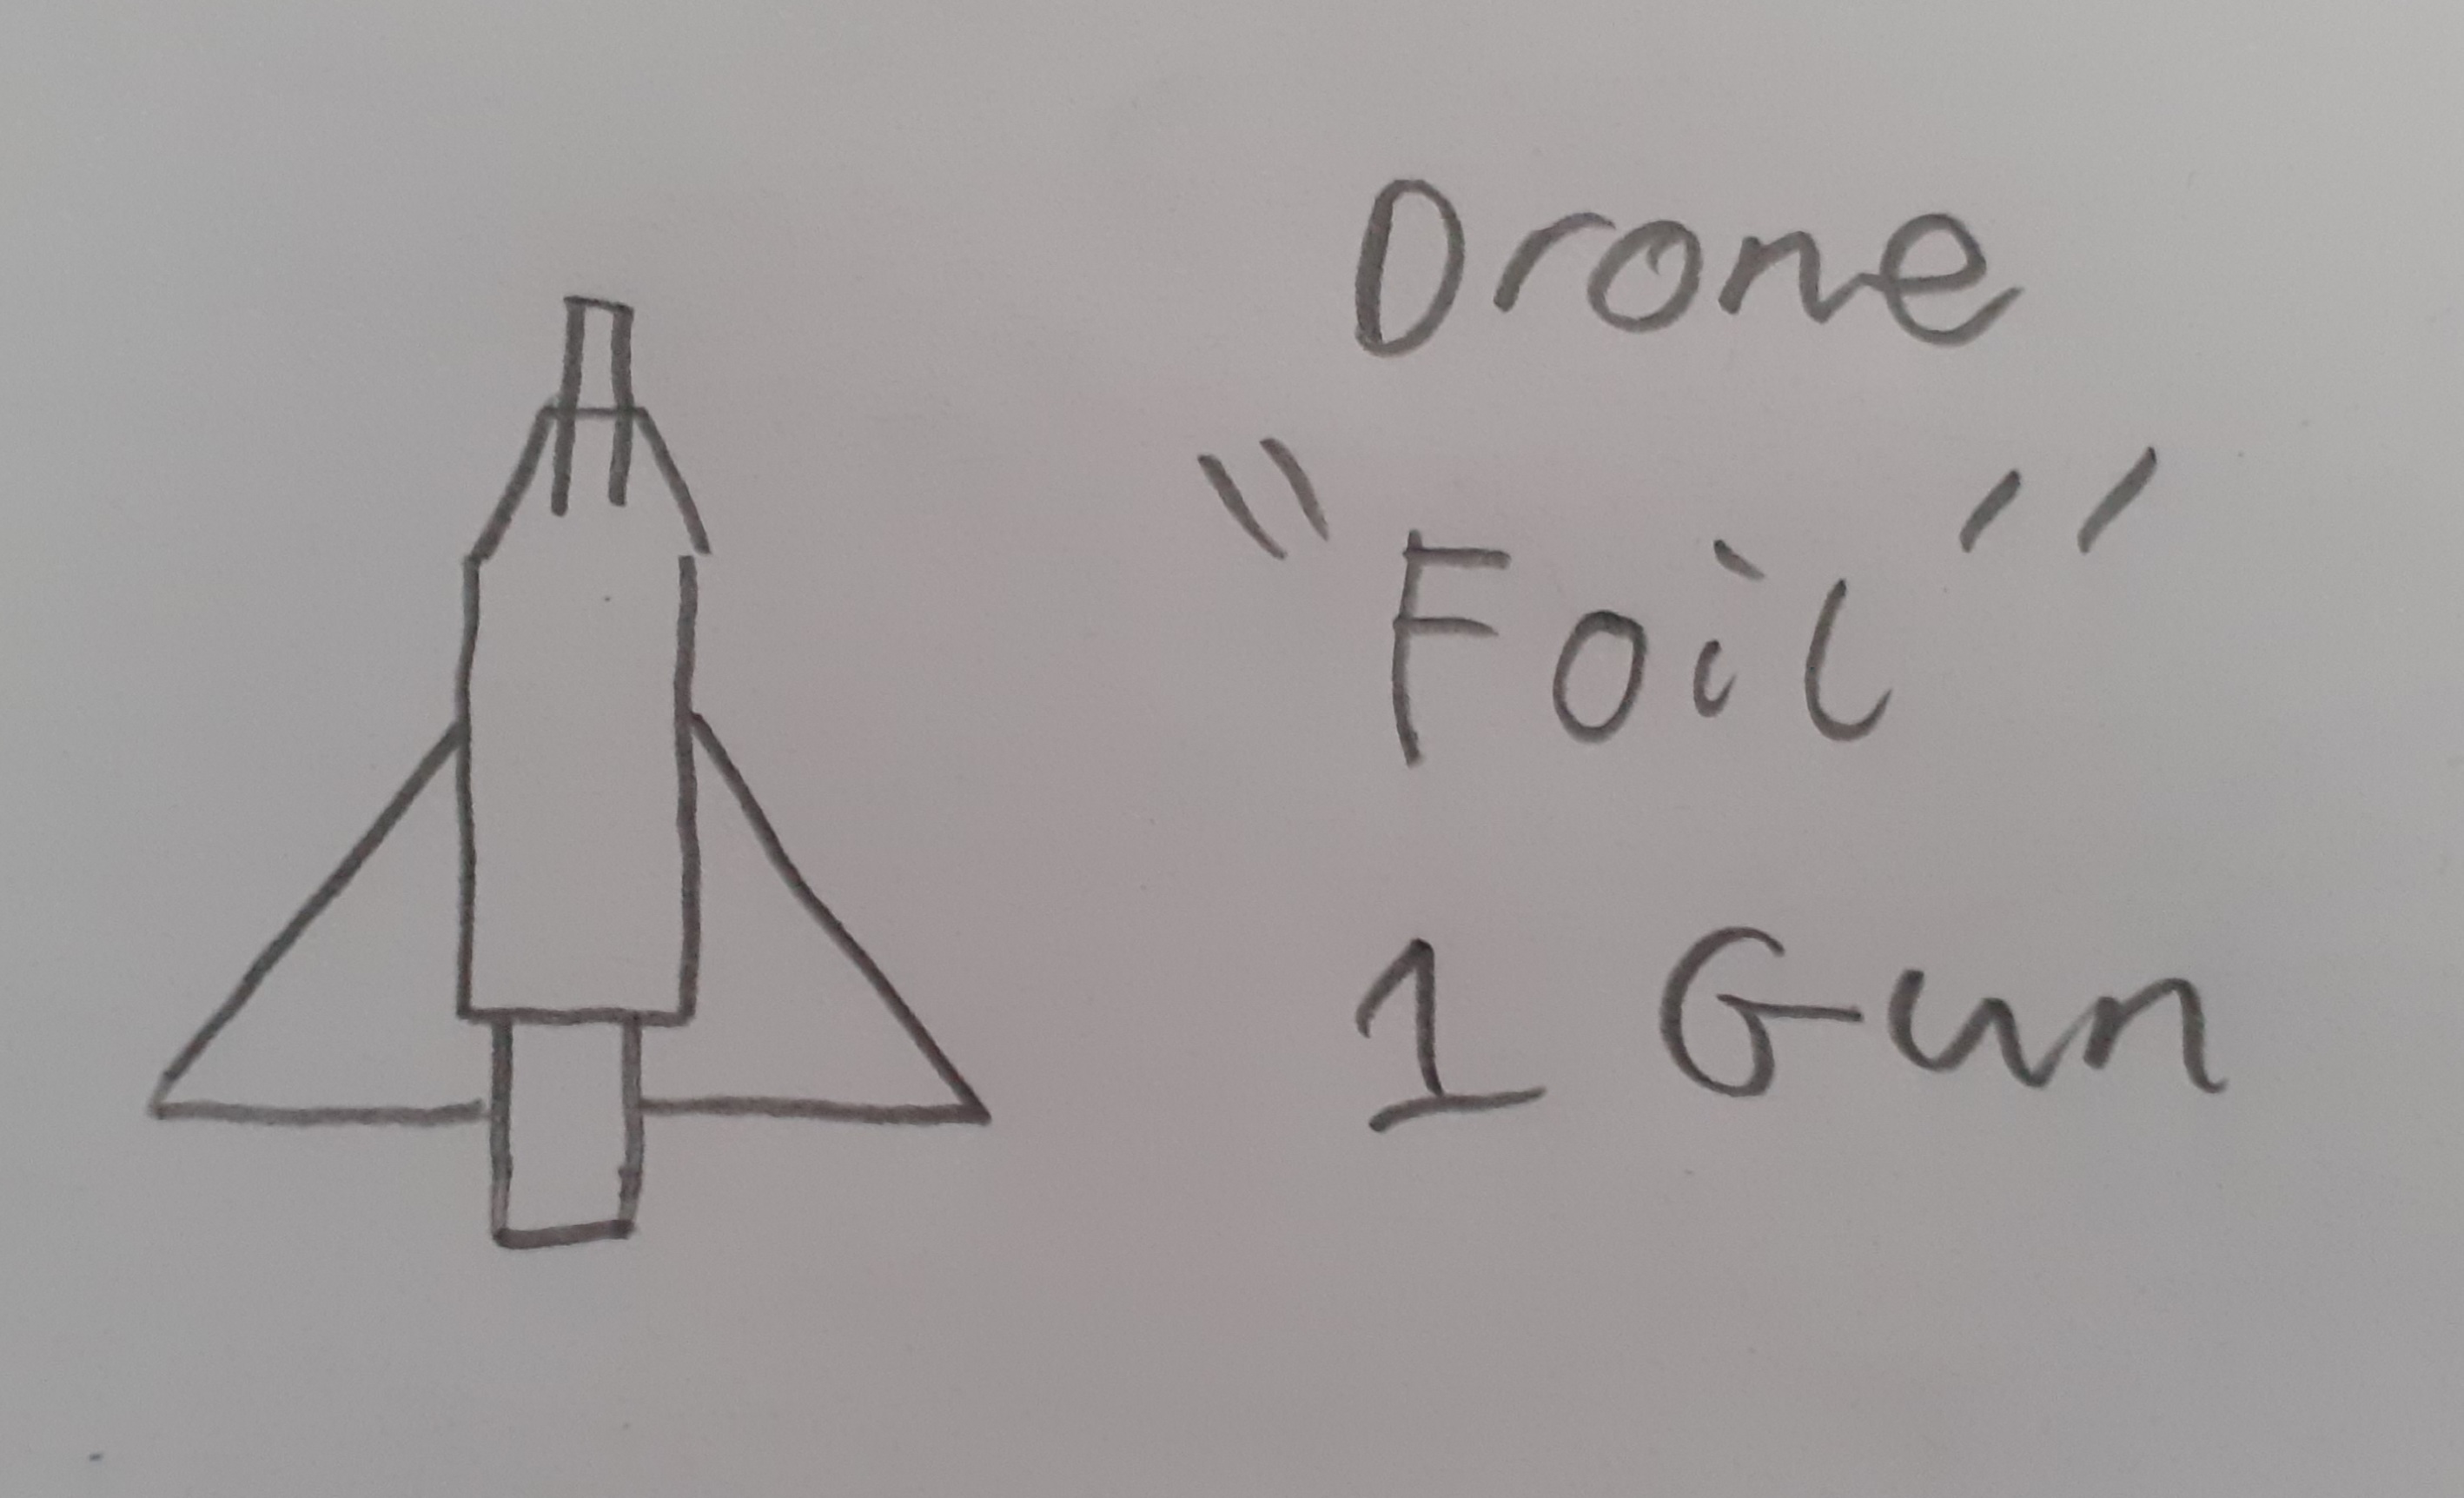 Drone
"Foil"
1 Gun